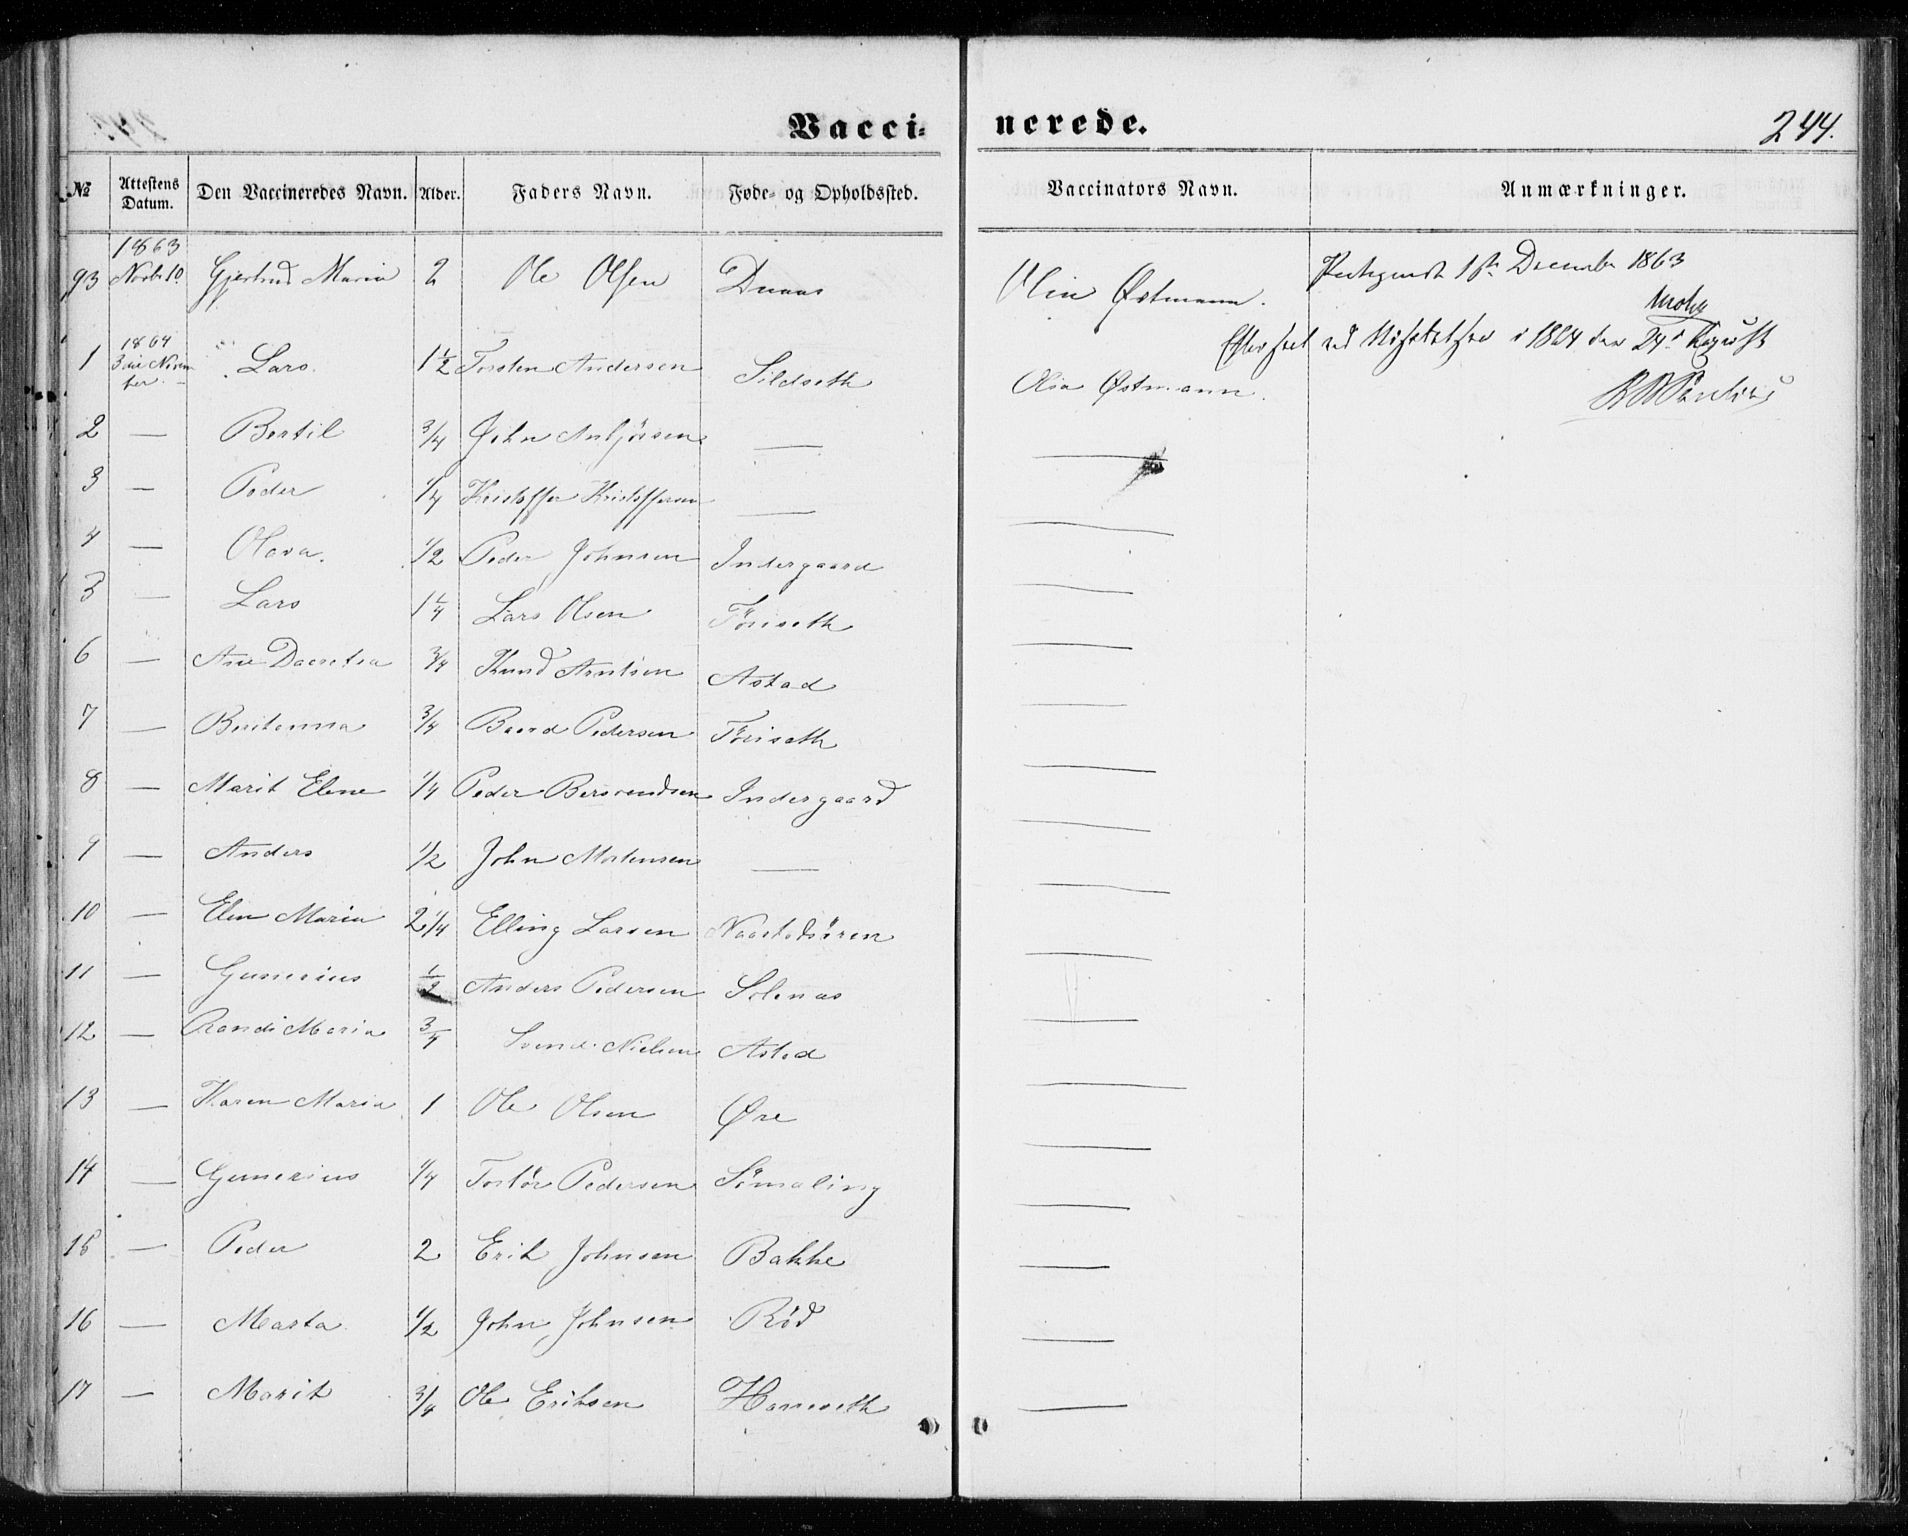 Vacci- nerede. 244.
№ Attestens Datum. Den Vaccineredes Navn. Alder. Faders Navn. Føde- og Opholdssted. Vaccinators Navn. Anmærkninger.
1863
93 Novbr 10 Gjertrud Maria 2 Ole Olsen Olin Østmann. December 1863
1864
1 Lars. 1 1/2 Torsten Andersen Sildseth Olia Østmann. i 1864 den 24. August
2 — Bertil 3/4 John —
3 — Peder 1/4 Kristoffer Kristoffersen —
4 — Olava. 1/2 Peder Johnsen Indergaard —
3 — Lars 1 1/4 Lars Olsen Föriseth —
6 — Ane Daaretea 3/4 Knud Arntsen Astad —
7 — Beritanna 3/4 Baard Pedersen Föriseth —
8 — Marit Elene 1/4 Peder Bersvendsen Indergaard —
9 — Anders 1/2 John Mortensen — —
10 — Elen Maria 2 1/4 Elling Larsen —
11 — Gunerius 1/2 Anders Pedersen Solenas —
12 — Randi Maria 3/4 Svend Nielsen Astad —
13 — Karen Maria 1 Ole Olsen Øre —
14 — Gunerius 1/4 Tostör Pedersen —
15 — Peder 2 Erik Johnsen Bakke —
16 — Marta 1/2 John Johnsen Röd —
17 — Marit 3/4 Ole Eriksen Harseth —